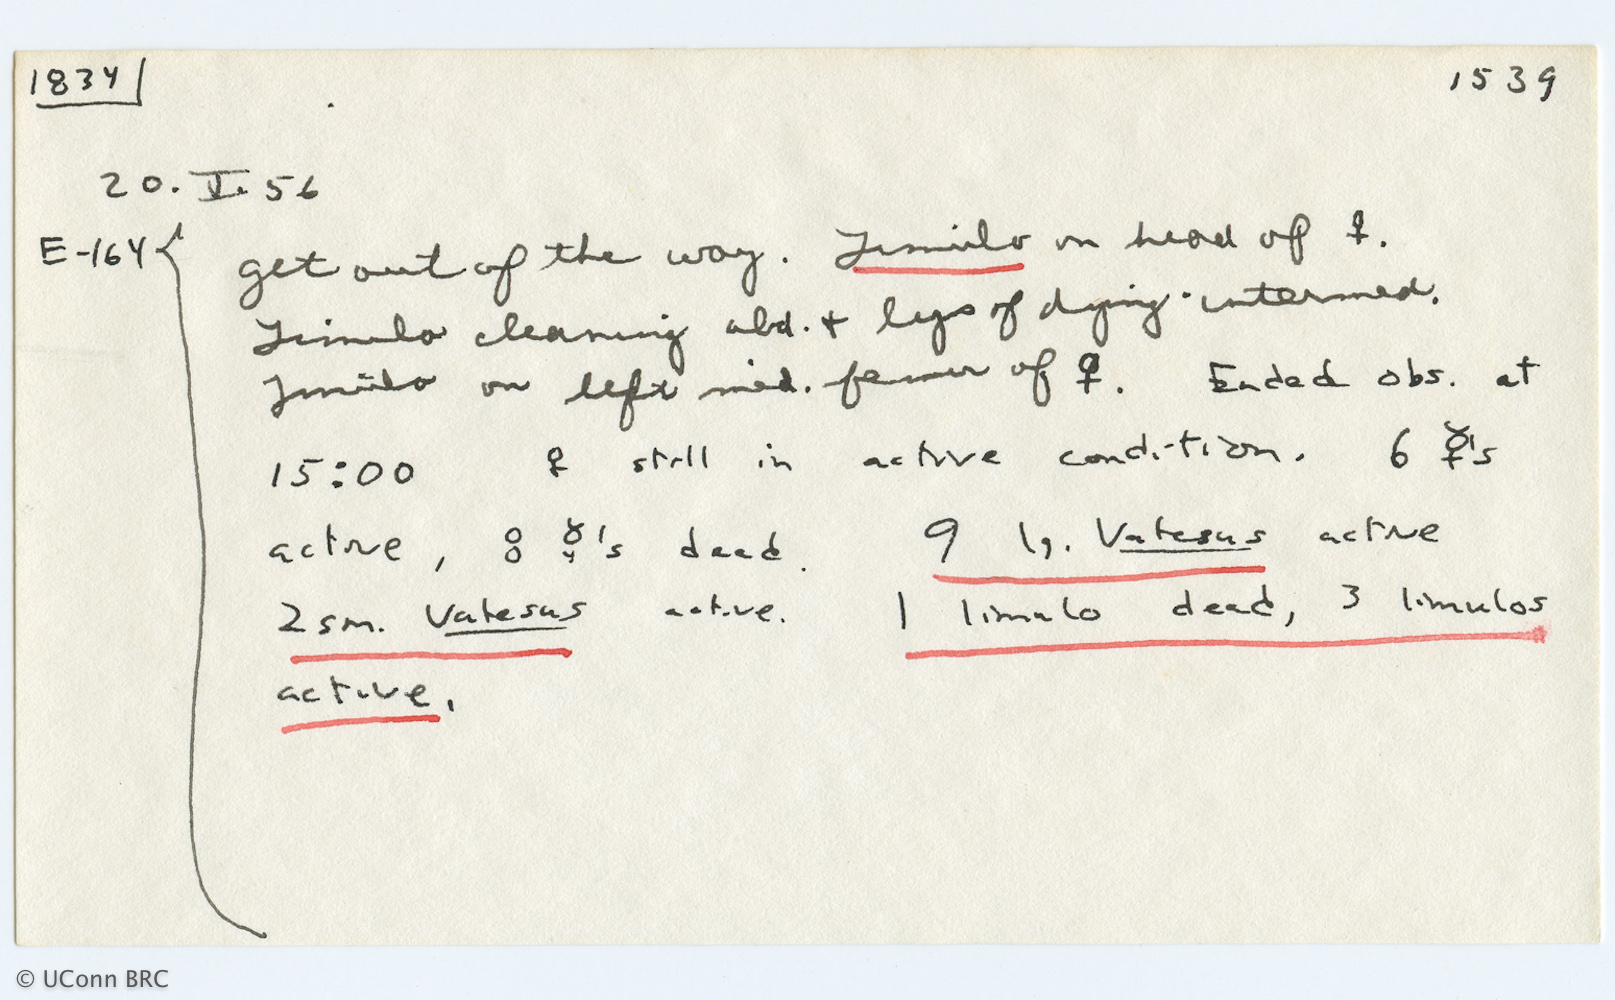 1834
1539
20.V.56
E-164
get out of the way. Limulo on head of ♀.
Limulo cleaning abd. + legs of dying intermed.
Limulo on left mid. femur of ♀. Ended obs. at
15:00 ♀ still in active condition. 6 ☿'s
active, 8 ☿'s dead. 9 lg. Vatesus active
2 sm. Vatesus active. 1 limulo dead, 3 limulos
active.
© UConn BRC